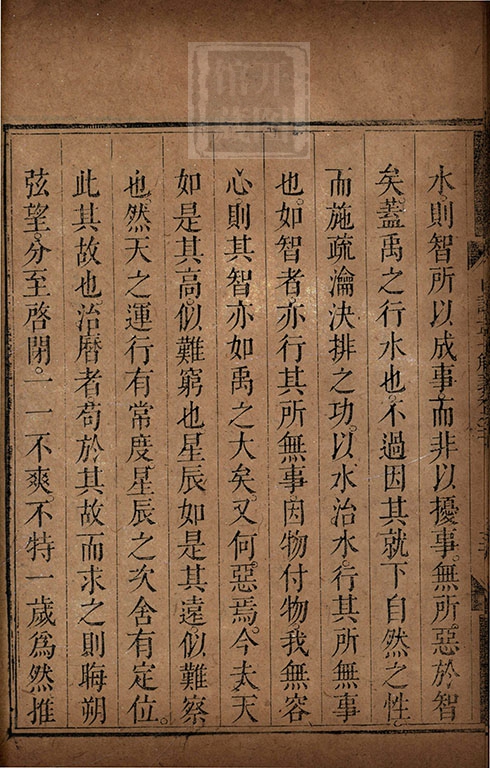 水則智所以成事。而非以擾事。無所惡於智
矣。蓋禹之行水也。不過因其就下自然之性。
而施疏瀹決排之功。以水治水。行其所無事
也。如智者亦行其所無事。因物付物。我無容
心。則其智亦如禹之大矣。又何惡焉。今夫天
如是其高。似難窮也。星辰如是其遠。似難察
也。然天之運行有常度。星辰之次舍有定位。
此其故也。治曆者苟於其故而求之。則晦朔
弦望。分至啓閉。一一不爽。不特一歲爲然。推